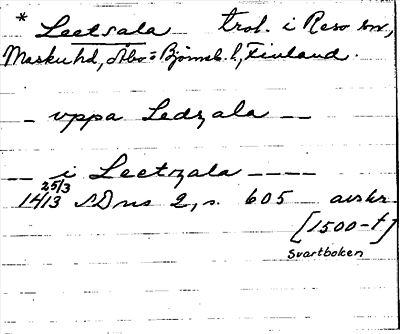 * Leetsala trol. i Reso sn,
Masku hd, Åbo-Björneb. l, Finland.
- uppa Ledzala -
- i Leetzala -
14 25/3 13 SD ns 2, s. 605 avskr.
[1500-t]
Svartboken